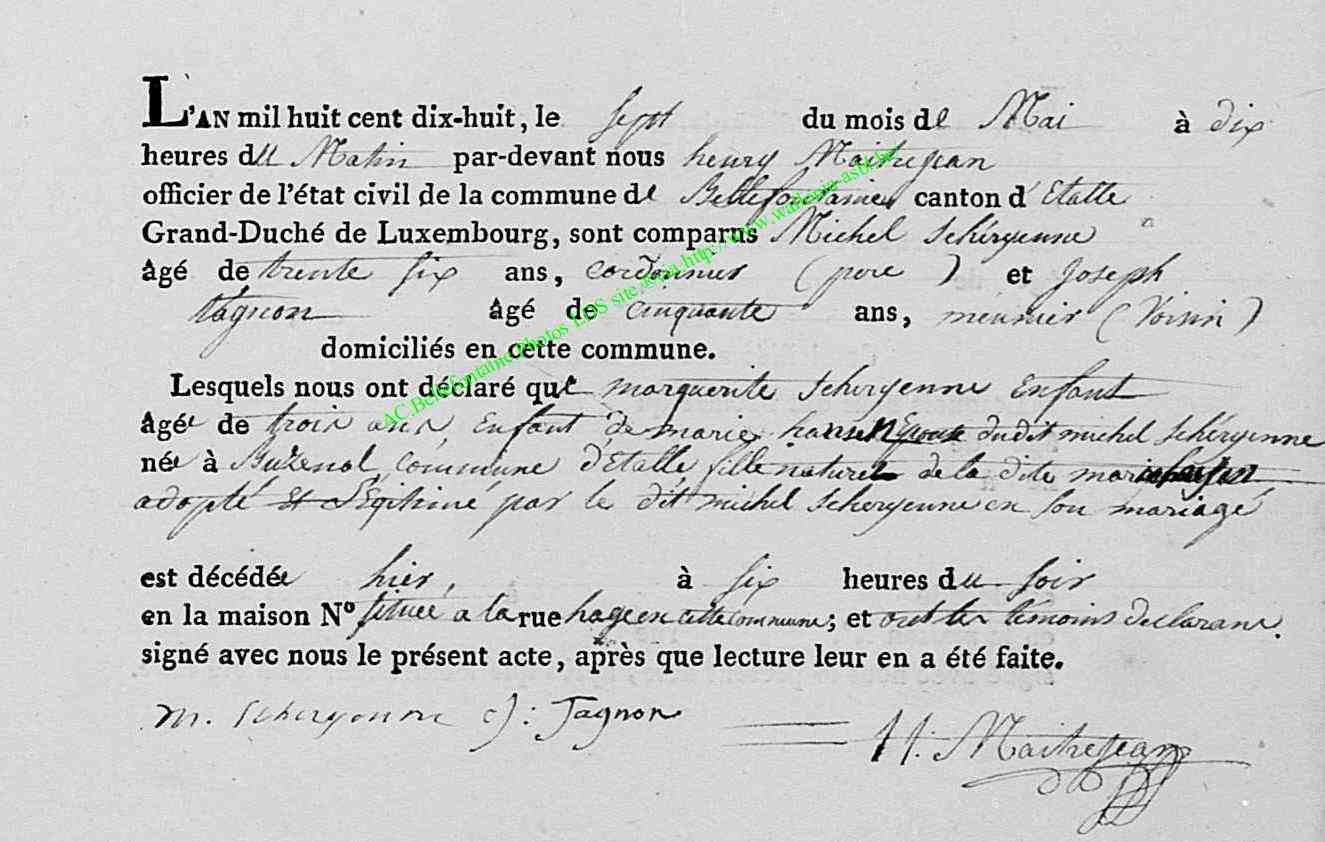 L'AN mil huit cent dix-huit, le sept du mois de Mai à dix
heures du Matin par-devant nous henry Maitrejean
officier de l'état civil de la commune de Bellefontaine canton d'Etalle
Grand-Duché de Luxembourg, sont comparus Michel Schéryenne
âgé de trente six ans, cordonnier (pere) et Joseph
tagnon âgé de cinquante ans, meunier (Voisin)
domiciliés en cette commune.
Lesquels nous ont déclaré que marguerite Scheryenne Enfant
âgée de trois ans, Enfant de marie hansen Epouse dudit michel Schéryenne
née à Buzenol, commune d'Etalle fille naturel de la dite marie
adopté et Légitimé par le dit michel Scheryenne en son mariage
est décédée hier, à six heures du soir
en la maison N° située a la rue hage en cette commune; et ont les témoins declarans
signé avec nous le présent acte, après que lecture leur en a été faite.
m. Scheryenne J: Tagnon
H. Maitrejean
AC Bellefontaine Photos LDS site